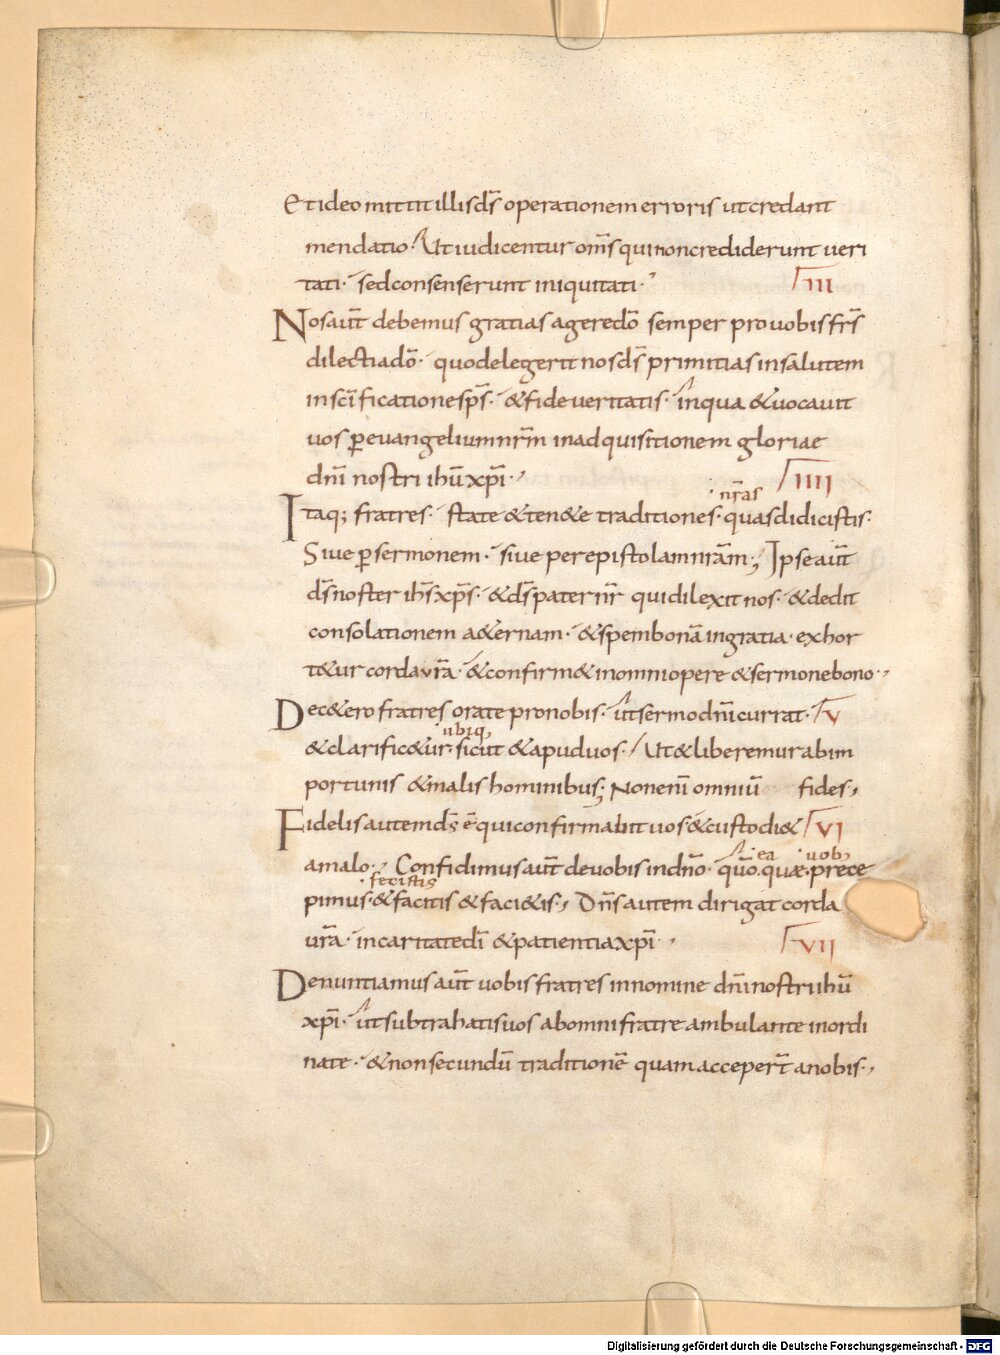 Et ideo mittit illis d̄s operationem erroris ut credant
mendatio · Ut iudicentur om̄s qui non crediderunt ueri
tati · sed consenserunt iniquitati ·
III
Nos aūt debemus gratias agere dō semper pro uobis fr̄s
dilecti a dō · quod elegerit nos d̄s primitias in salutem
in sc̄ificatione sp̄s · & fide ueritatis · in qua & uocauit
uos ꝑ euangelium nr̄m in adquisitionem gloriae
dn̄i nostri ihū xp̄i ·
IIII
· nr̄as
Itaq; fratres · state & ten&e traditiones · quas didicistis ·
Siue ꝑ sermonem · siue per epistolam nr̄am ; Ipse aūt
d̄s noster ih̄s xp̄s · & d̄s pater nr̄ qui dilexit nos · & dedit
consolationem a&ernam · & spem bonā in gratia · exhor
t&ur corda vr̄a · & confirm& in omni opere & sermone bono ·
De c&ero fratres orate pro nobis · ut sermo dn̄i currat · V
· ubiq;
& clarific&ur · sicut & apud uos · Ut & liberemur ab im
portunis & malis hominibus ; Non enī omniū fides ,
Fidelis autem d̄s ē qui confirmabit uos & custodi& VI
· ea · uob
a malo · Confidimus aūt de uobis in dn̄o · quō quæ · prece
· fecistis
pimus · & facitis & faci&is , Dn̄s autem dirigat corda
ur̄a · in caritate dī & patientia xp̄i ·
VII
Denuntiamus aūt uobis fratres in nomine dn̄i nostri ihū
xp̄i · ut subtrahatis uos ab omni fratre ambulante inordi
nate · & non secundū traditionē quam acceper̄t a nobis ·
Digitalisierung gefördert durch die Deutsche Forschungsgemeinschaft - DFG